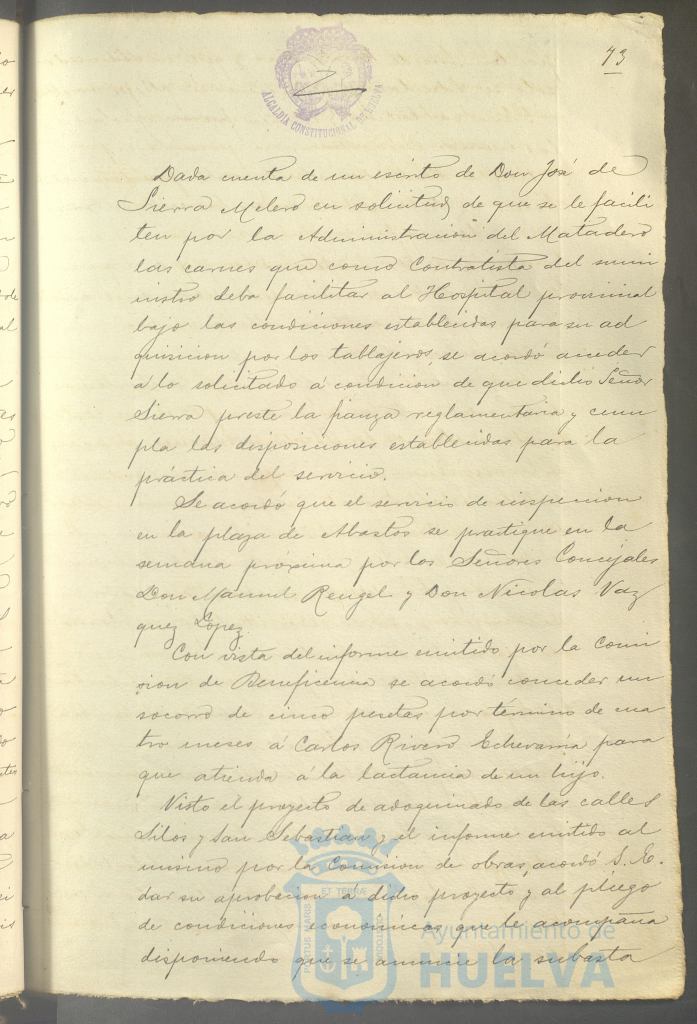 73
ALCALDIA CONSTITUCIONAL DE HUELVA
Dada cuenta de un escrito de Don José de
Sierra Melero en solicitud de que se le facili
ten por la Administracion del Matadero
las carnes que como Contratista del sumi
nistro deba facilitar al Hospital provincial
bajo las condiciones establecidas para su ad
quisicion por los tablajeros, se acordó acceder
á lo solicitado á condicion de que dicho Señor
Sierra preste la fianza reglamentaria y cum
pla las disposiciones establecidas para la
práctica del servicio.
Se acordó que el servicio de inspeccion
en la plaza de Abastos se practique en la
semana próxima por los Señores Concejales
Don Manuel Rengel y Don Nicolas Vaz
quez Lopez.
Con vista del informe emitido por la Comi
sion de Beneficencia se acordó conceder un
socorro de cinco pesetas por término de cua
tro meses á Carlos Rivero Echevarria para
que atienda á la lactancia de un hijo.
Visto el proyecto de adoquinado de las calles
Silos y San Sebastian y el informe emitido al
mismo por la Comision de obras, acordó S. E.
dar su aprobacion á dicho proyecto y al pliego
de condiciones económicas que le acompaña
disponiendo que se anuncie la subasta
PORTUS MARIS ET TERRÆ CUSTODIA
Ayuntamiento de
HUELVA